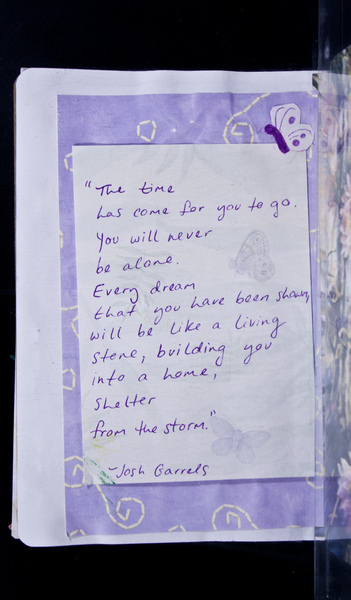 "The time
has come for you to go.
You will never
be alone.
Every dream
that you have been shown,
will be like a living
stone, building you
into a home,
shelter
from the storm."
~Josh Garrels